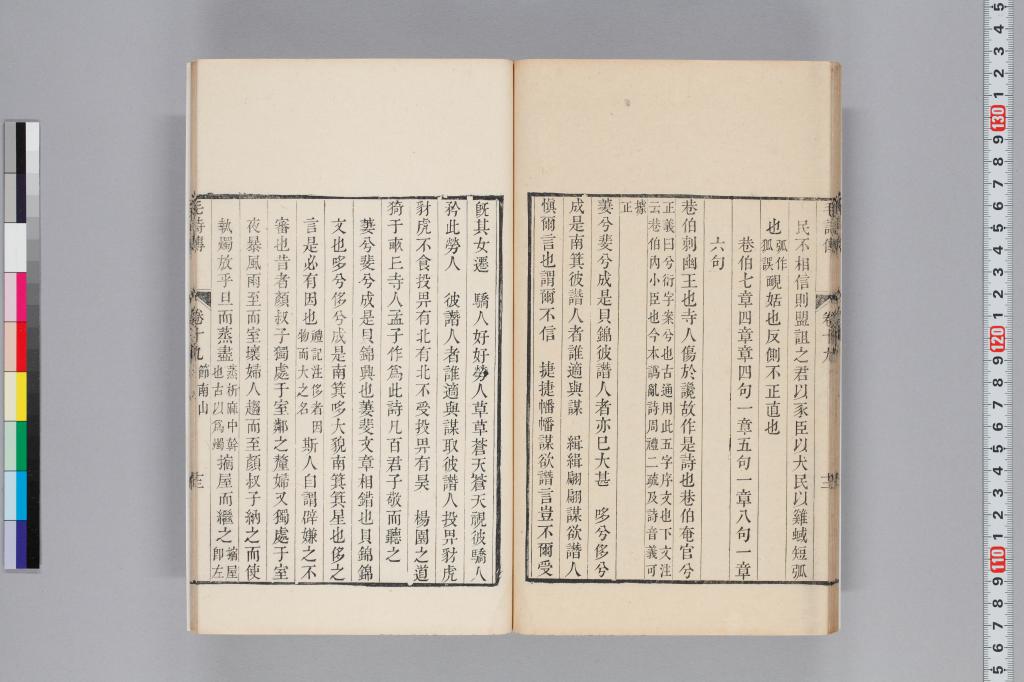 民不相信則盟詛之君以豕臣以犬民以雞蜮短弧
也弧作狐誤靦姡也反側不正直也
巷伯七章四章章四句一章五句一章八句一章
六句
巷伯刺幽王也寺人傷於讒故作是詩也巷伯奄官兮
正義曰兮衍字案兮也古通用此五字序文也下文注
云巷伯內小臣也今本譌亂詩周禮二疏及詩音義可
據
正
萋兮斐兮成是貝錦彼譖人者亦巳大甚 哆兮侈兮
成是南箕彼譖人者誰適與謀 緝緝翩翩謀欲譖人
愼爾言也謂爾不信 捷捷幡幡謀欲譖言豈不爾受
旣其女遷 驕人好好勞人草草蒼天蒼天視彼驕人
矜此勞人 彼譖人者誰適與謀取彼譖人投畀豺虎
豺虎不食投畀有北有北不受投畀有昊 楊園之道
猗于畞丘寺人孟子作爲此詩凡百君子敬而聽之
萋兮斐兮成是貝錦興也萋斐文章相錯也貝錦錦
文也哆兮侈兮成是南箕哆大貌南箕箕星也侈之
言是必有因也禮記注侈者因物而大之名斯人自謂辟嫌之不
審也昔者顏叔子獨處于室鄰之釐婦又獨處于室
夜暴風雨至而室壞婦人趨而至顏叔子納之而使
執燭放乎旦而蒸盡蒸析麻中榦也古以爲燭摍屋而繼之摍屋卽左
毛詩傳
卷十九
節南山